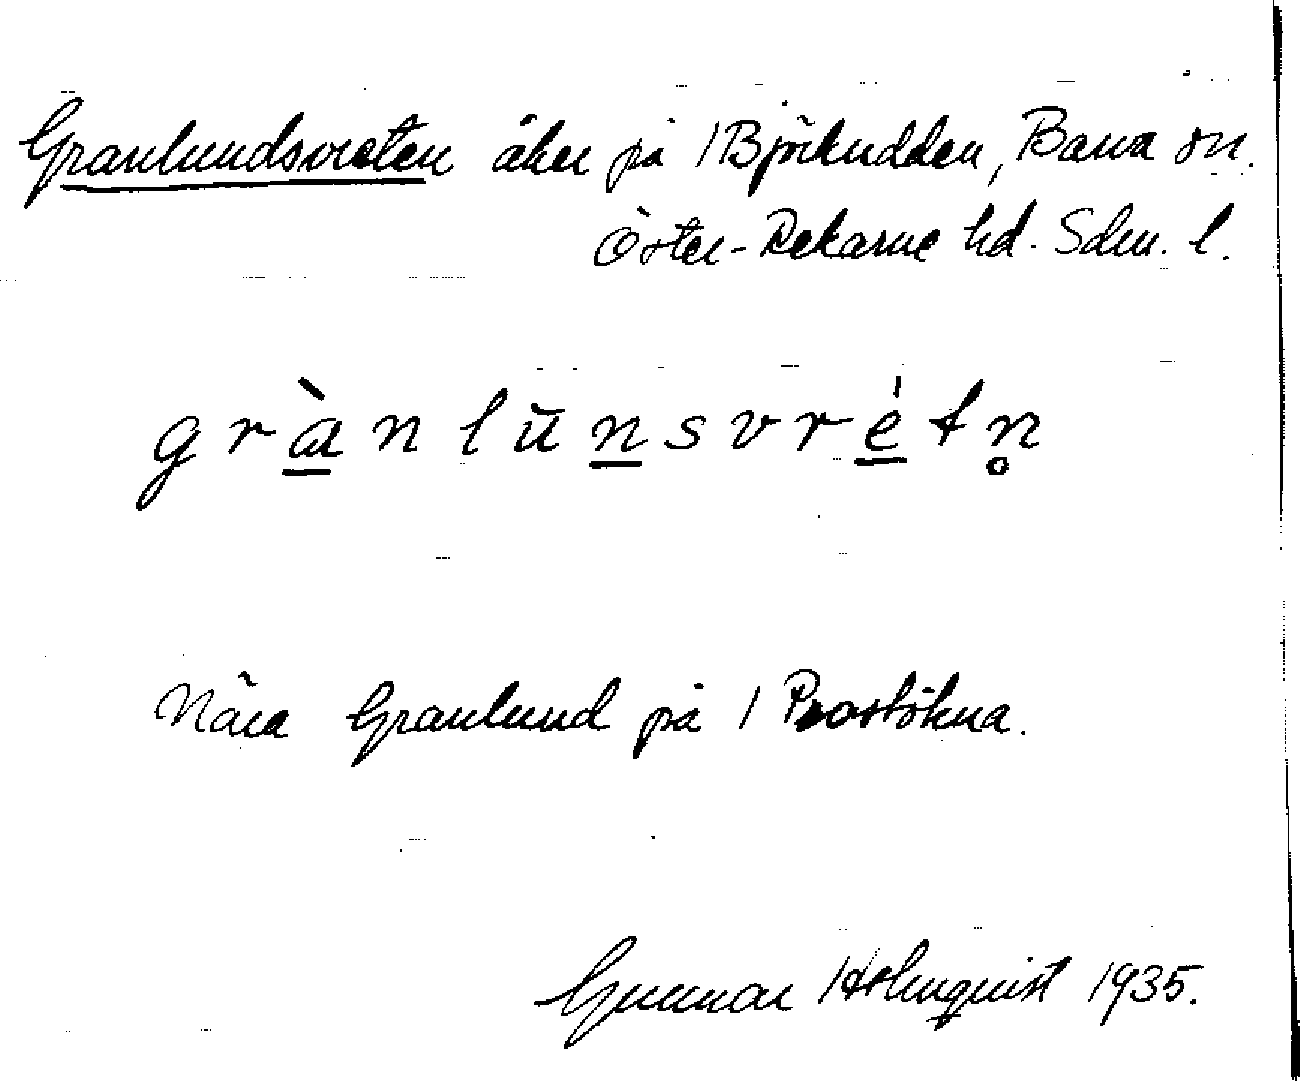 Granlundsvreten åker på 1 Björkudden, Barva sn.
Öster-Rekarne hd. Sdm. l.
grànlŭnsvrétn̥
Nära Granlund på 1 Prostökna.
Gunnar Holmquist 1935.